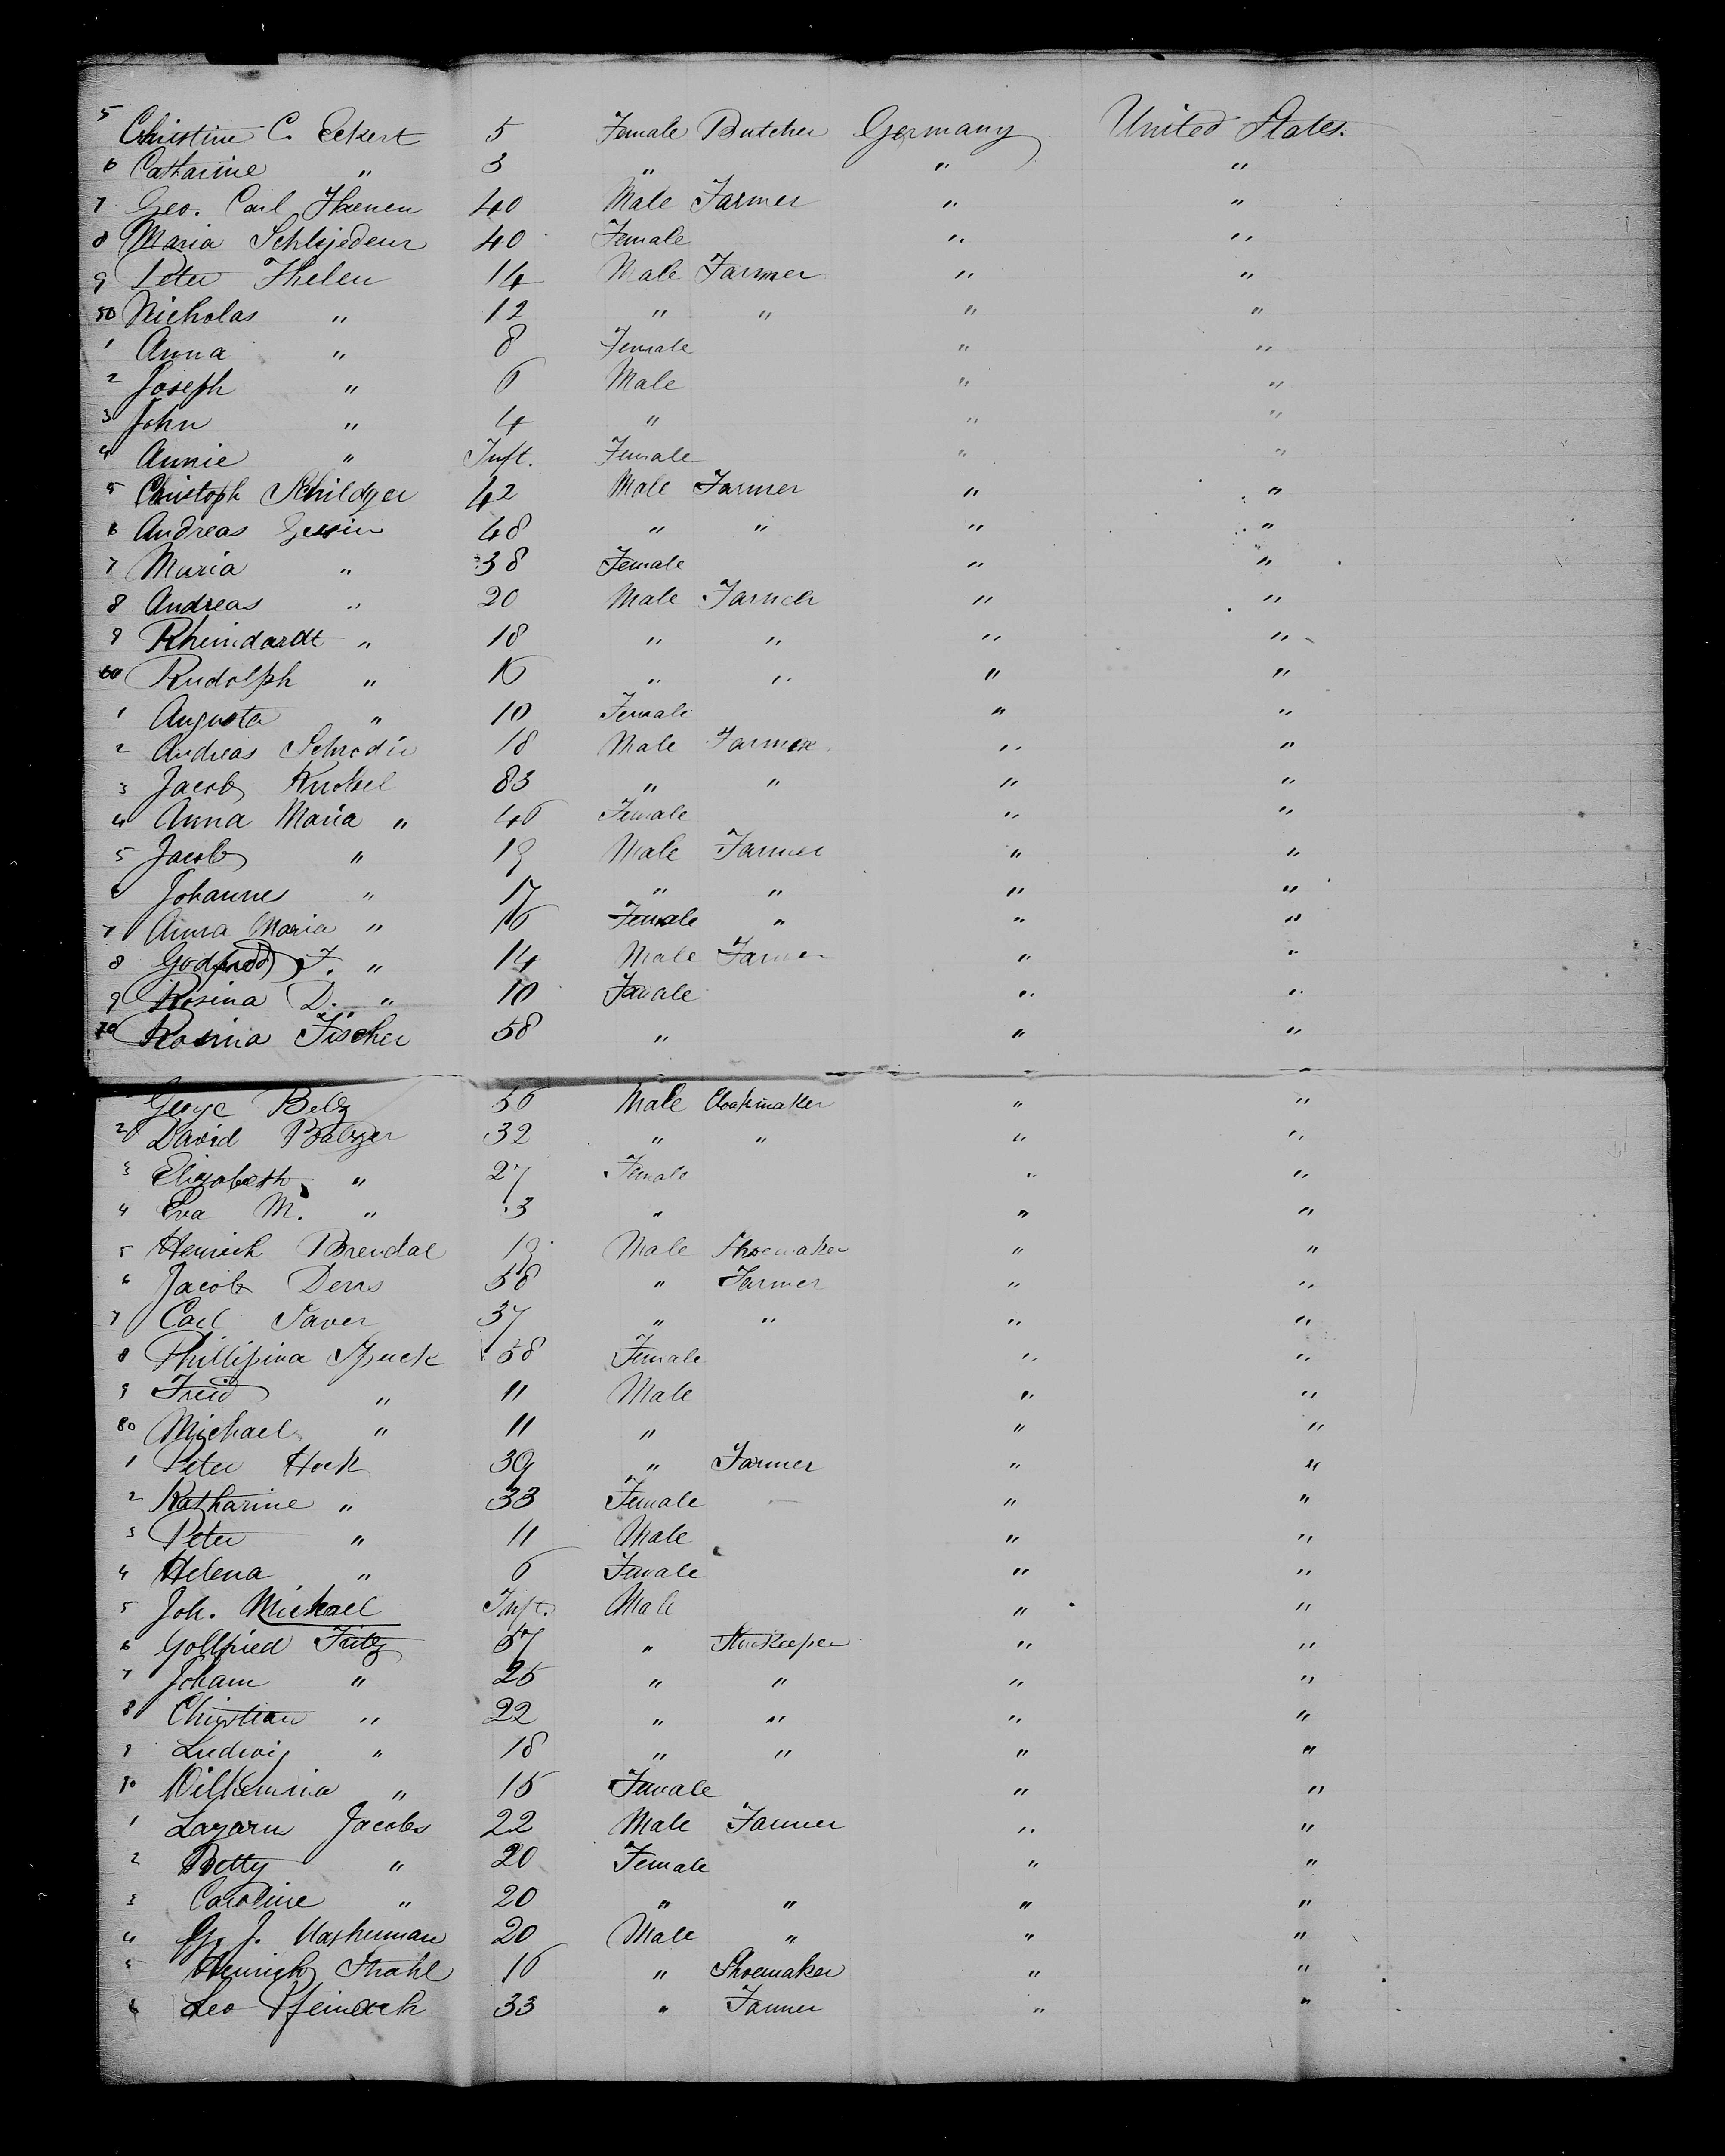 5 Christine C. Eckert 5 Female Butcher Germany United States.
6 Catharine " 3 " " "
7 Geo. Carl 40 Male Farmer " "
8 Maria 40 Female " "
9 Peter Thelen 14 Male Farmer " "
50 Nicholas " 12 " " " "
1 Anna " 8 Female " "
2 Joseph " 6 Male " "
3 John " 4 " " "
4 Annie " Inft. Female " "
5 Christoph Schildger 42 Male Farmer " "
6 Andreas 48 " " " "
7 Maria " 38 Female " "
8 Andreas " 20 Male Farmer " "
9 Rheindardt " 18 " " " "
60 Rudolph " 16 " " " "
1 Augusta " 10 Female " "
2 Andreas Schrodir 18 Male Farmer " "
3 Jacob 83 " " " "
4 Anna Maria " 46 Female " "
5 Jacob " 19 Male Farmer " "
6 Johannes " 17 " " " "
7 Anna Maria " 16 Female " " "
8 Godfried F. " 14 Male Farmer " "
9 Rosina D. " 10 Female " "
70 Rosina Fischer 58 " " "
George Belz 56 Male Cloakmaker " "
2 David Balzer 32 " " " "
3 Elizabeth " 27 Female " "
4 Eva M. " 3 " " "
5 Henrich Brendal 19 Male Shoemaker " "
6 Jacob Derrs 58 " Farmer " "
7 Carl 37 " " " "
8 Phillipina Spuck 58 Female " "
9 Fried " 11 Male " "
80 Michael " 11 " " "
1 Peter Hock 39 " Farmer " "
2 Katharine " 33 Female " "
3 Peter " 11 Male " "
4 Helena " 6 Female " "
5 Joh. Michael Inft. Male " "
6 Gottfried Fritz 57 " " "
7 Joham " 25 " " " "
8 Christian " 22 " " " "
9 Ludwig " 18 " " " "
90 Wilhemina " 15 Female " "
1 Lazarus Jacobs 22 Male Farmer " "
2 Betty " 20 Female " "
3 Caroline " 20 " " " "
4 J. 20 Male " " "
5 Henrich Strahl 16 " Shoemaker " "
6 Leo 33 " Farmer " "